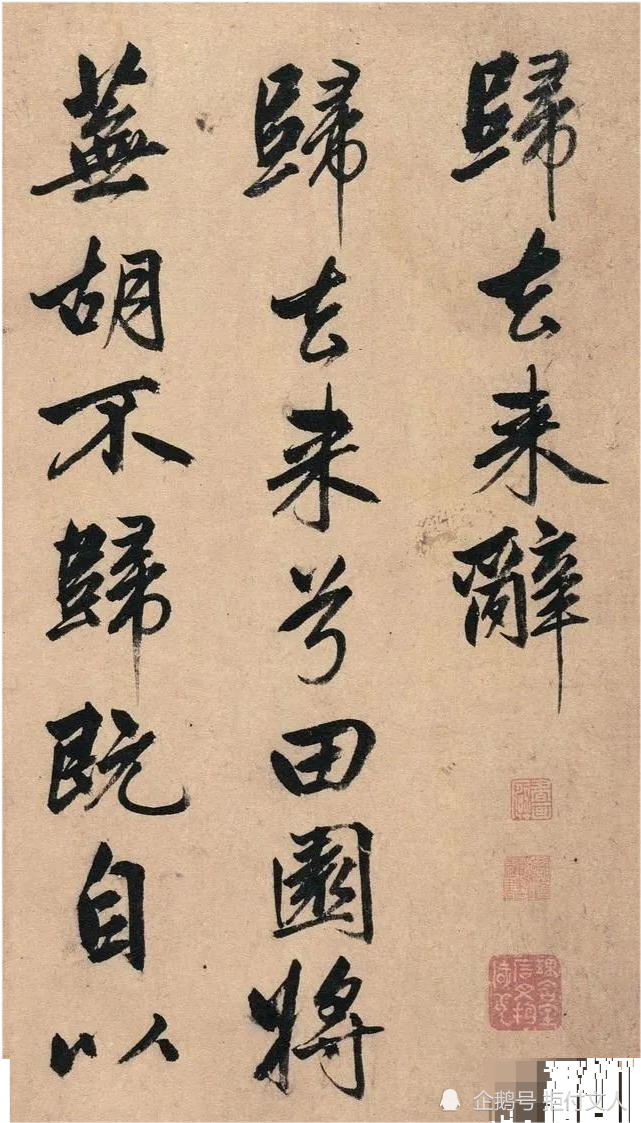 歸去来辭
歸去来兮田園將
蕪胡不歸既自以
企鹅号